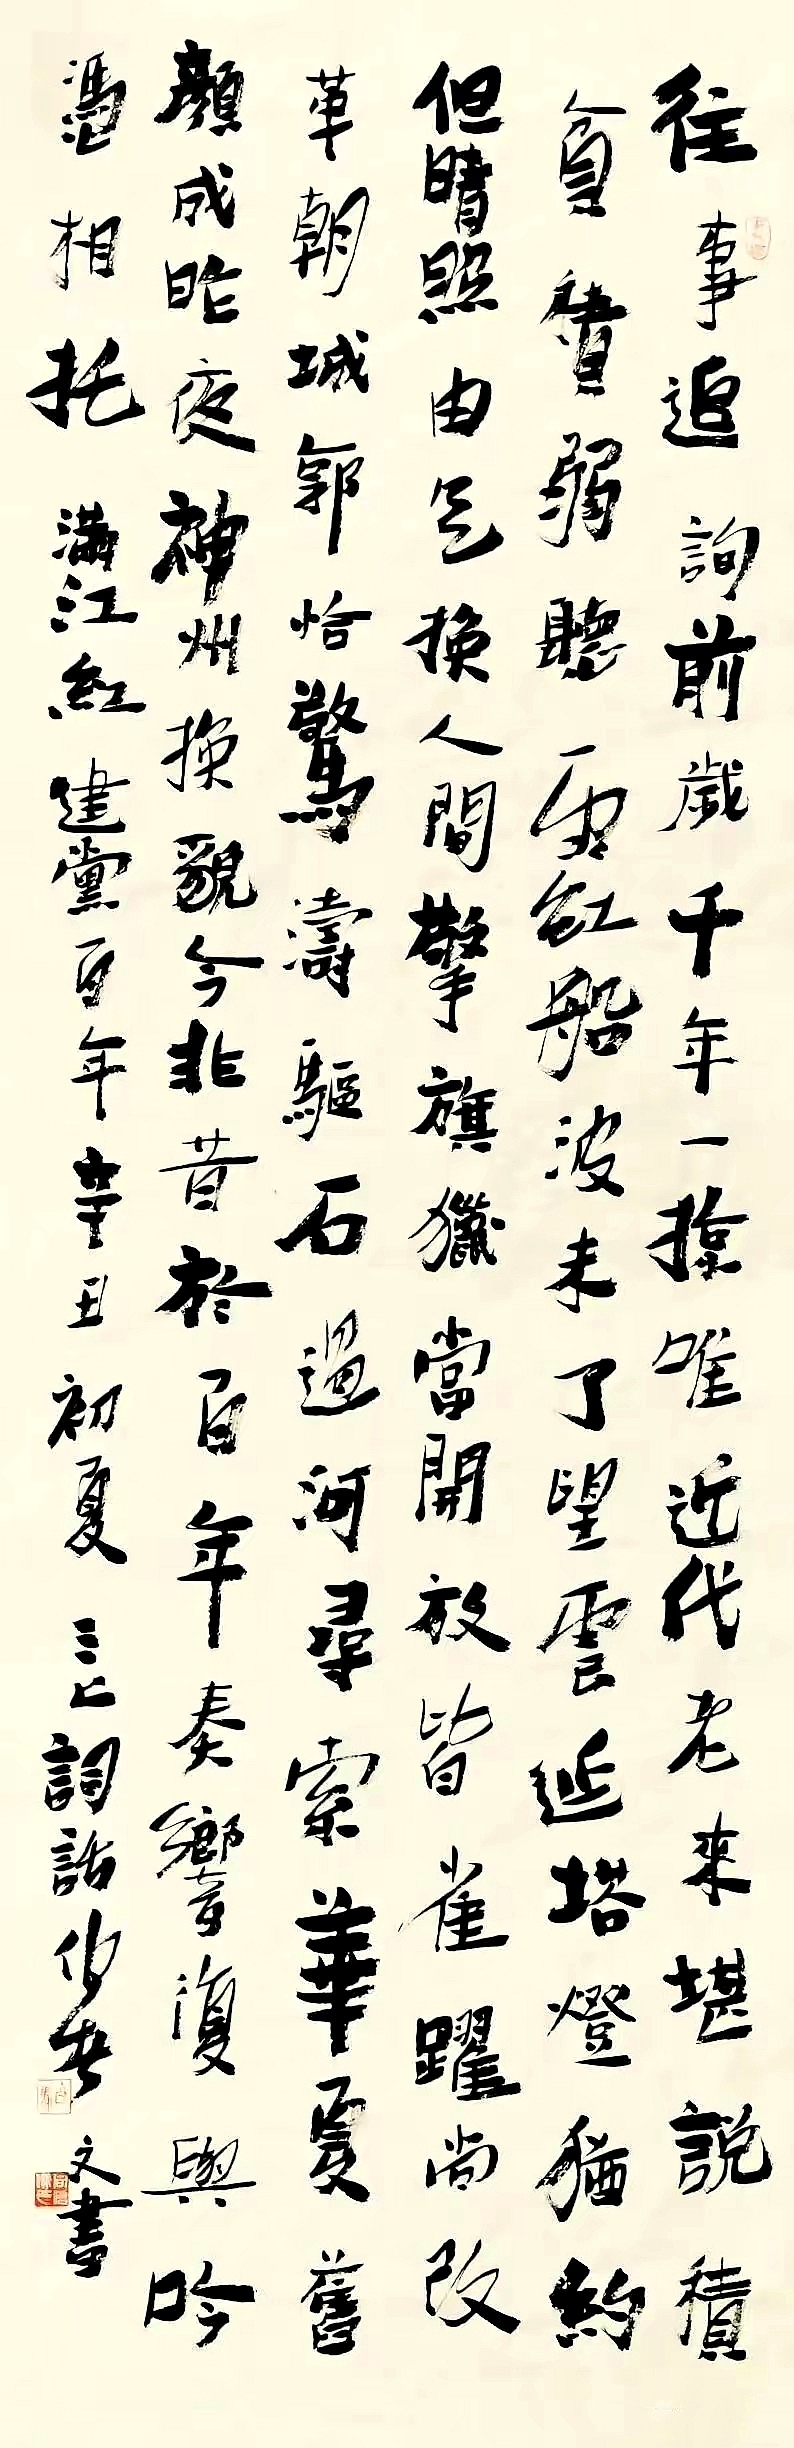 往事追詢前歲千年一掠唯近代老來堪說積
貧積弱聽雨紅船波未了望雲延塔燈猶約
但晴照由是換人間擎旗獵當開放皆雀躍尚改
革朝城郭恰驚濤驅石過河尋索華夏舊
顏成昨夜神州換貌今非昔於百年奏響復興吟
憑相托 滿江紅 建黨百年辛丑初夏 詞話 文書